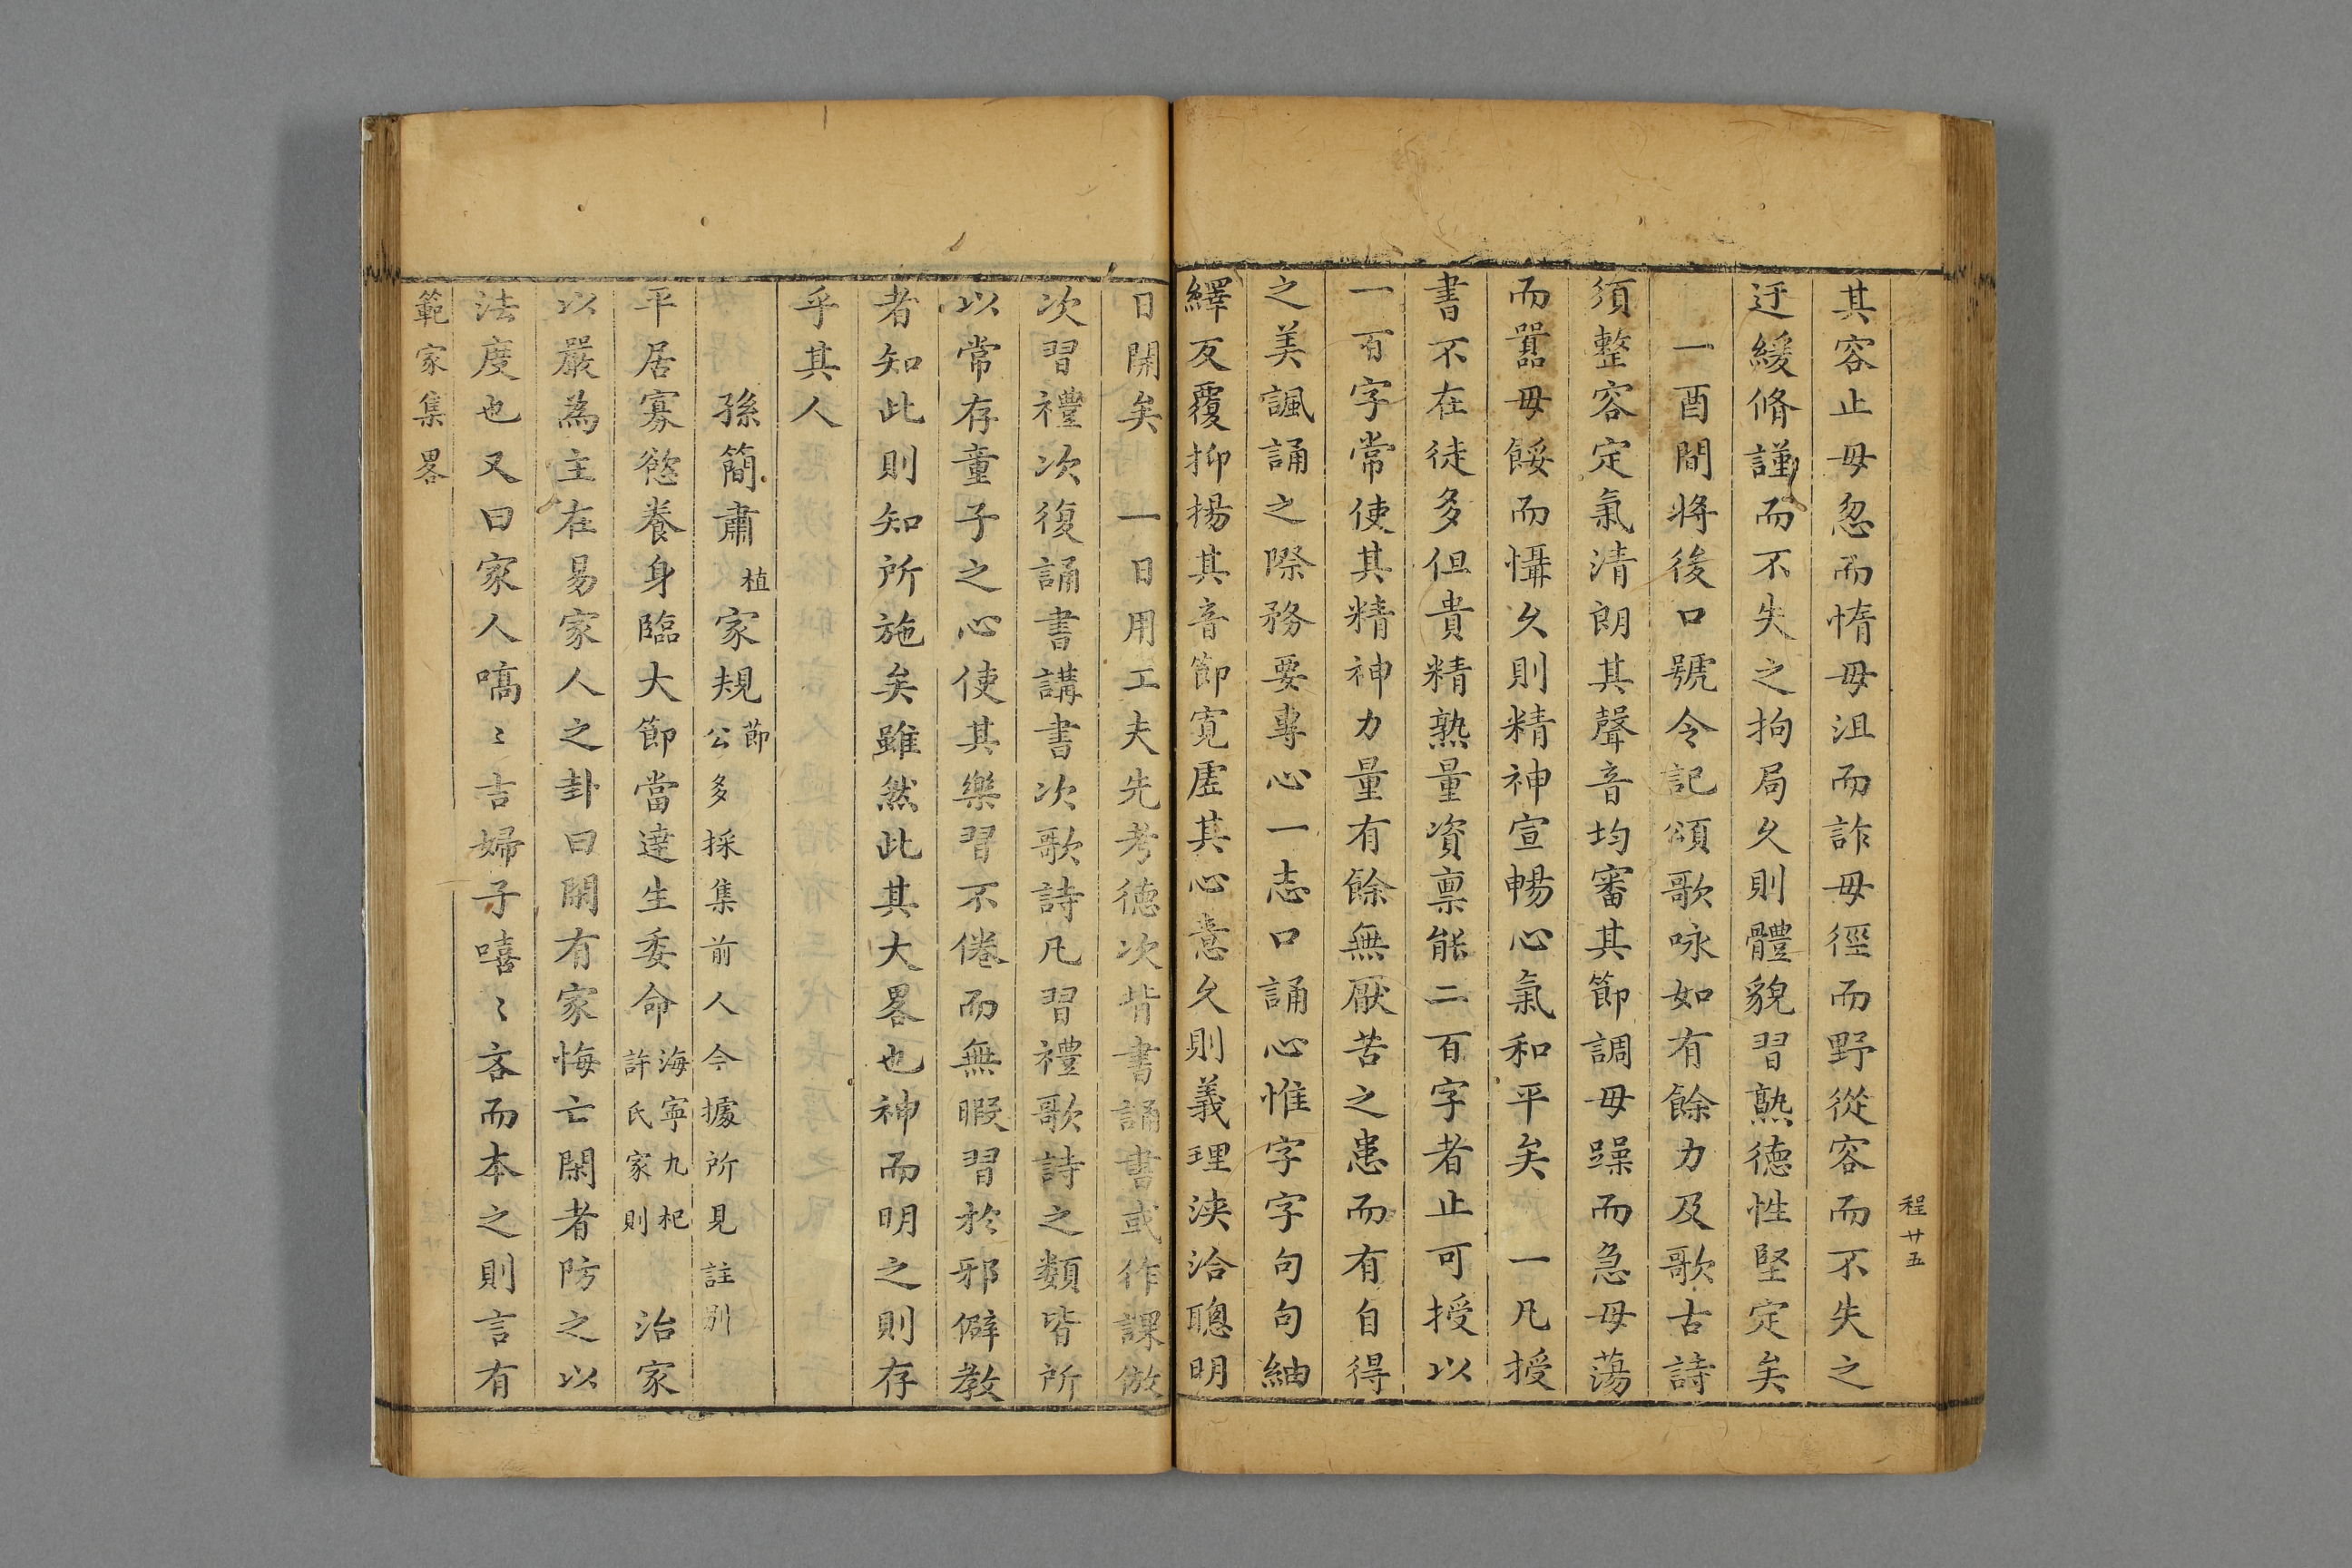 程廿五
其容止毋忽而惰毋沮而詐毋徑而野從容而不失之
迂緩脩謹而不失之拘局久則體貌習熟德性堅定矣
一酉間将後口號令記頌歌咏如有餘力及歌古詩
須整容定氣清朗其聲音均審其節調毋躁而急毋蕩
而嚣毋餒而懾久則精神宣暢心氣和平矣　一凡授
書不在徒多但貴精熟量資禀能二百字者止可授以
一百字常使其精神力量有餘無厭苦之患而有自得
之美諷誦之際務要專心一志口誦心惟字字句句紬
繹反覆抑揚其音節寛虗其心意久則義理浹洽聰明
日開矣　一日用工夫先考德次背書誦書或作課倣
次習禮次復誦書講書次歌詩凡習禮歌詩之類皆所
以常存童子之心使其樂習不倦而無暇習於邪僻教
者知此則知所施矣雖然此其大畧也神而明之則存
乎其人
孫簡肅植家規節公多採集前人今據所見註別
平居寡慾養身臨大節當達生委命海寧九杞許氏家則　治家
以嚴為主在易家人之卦曰閑有家悔亡閑者防之以
法度也又曰家人嗃〻吉婦子嘻〻吝而本之則言有
範家集畧